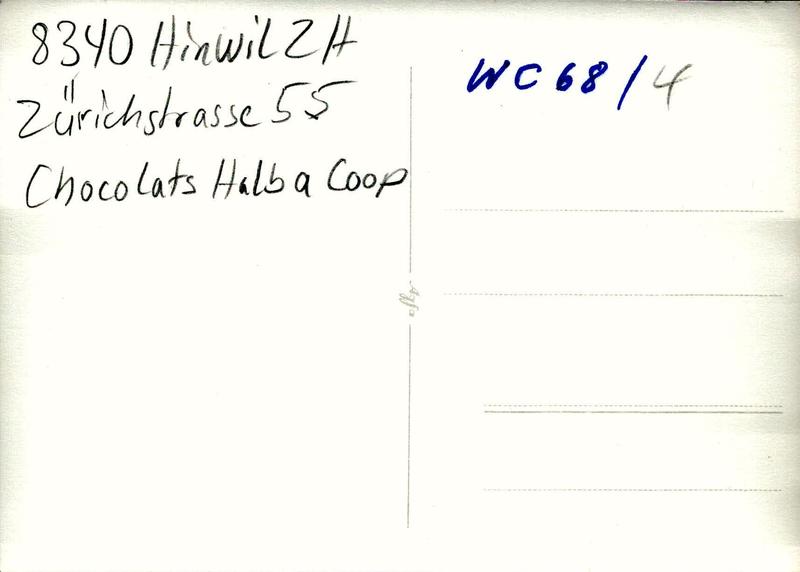 8340 Hinwil ZH
Zürichstrasse 55
Chocolats Halba Coop
WC 68/4
Agfa